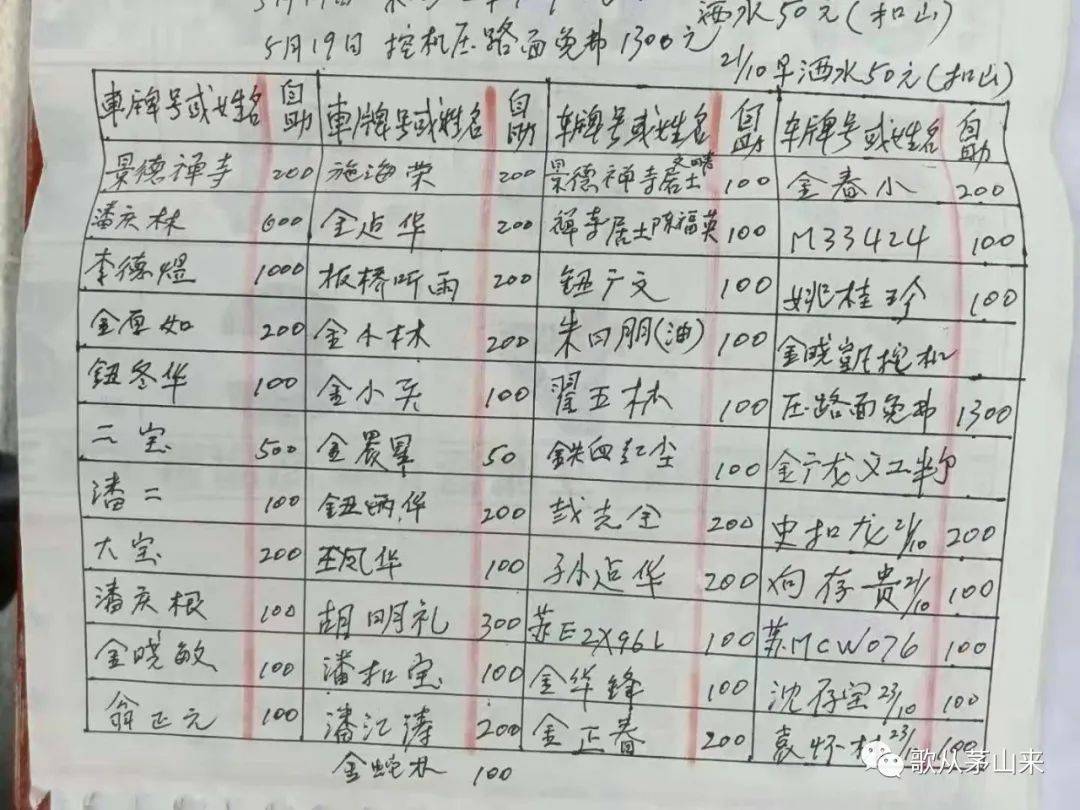 洒水50元(扣山)
5月19日 挖机压路面免费1300元
21/10早洒水50元(扣山)
車牌号或姓名 自助 車牌号或姓名 自助 车牌号或姓名 自助 车牌号或姓名 自助
景德禅寺 200 施海荣 200 景德禅寺居士 100 金春小 200
潘庆林 600 金占华 200 禅寺居士陈福英 100 M33424 100
李德煜 1000 板桥听雨 200 钮广文 100 姚桂珍 100
金厚如 200 金小林 200 朱四朋(油) 100 金晓凱挖机
钮冬华 100 金小关 100 翟五林 100 压路面免费 1300
二宝 500 金晨軍 50 鉄血红尘 100 金广龙义工
潘二 100 钮炳华 200 彭克全 200 史扣龙21/10 200
大宝 200 王凤华 100 孙占华 200 向存贵21/10 100
潘庆根 100 胡明礼 300 苏E2X96L 100 苏MCW076 100
金晓敏 100 潘扣宝 100 金华锋 100 沈存宝23/10 100
翁正元 100 潘江涛 200 金正春 200 袁怀 23/10 100
金 100
歌从茅山来